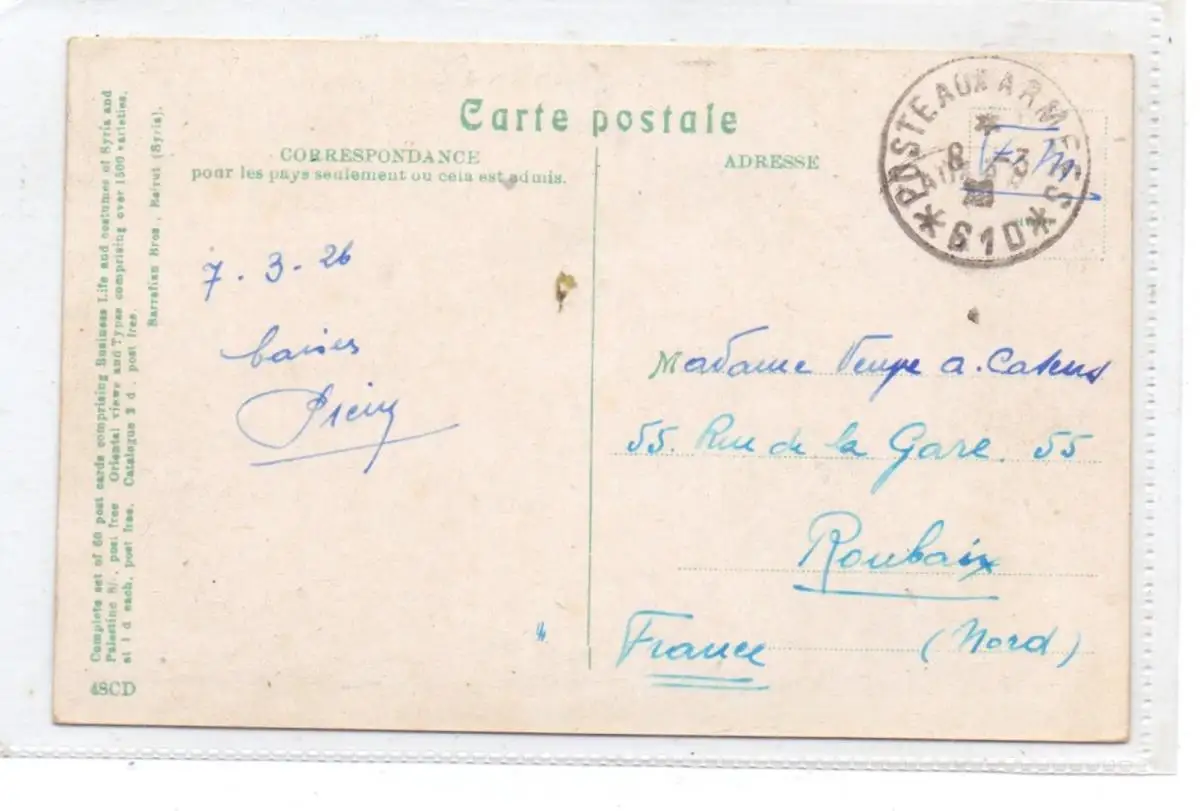 Carte postale
CORRESPONDANCE
pour les pays seulement ou cela est admis.
ADRESSE
* POSTE AUX ARMEES *
*
8 -3
610
F.M.
7.3.26
baisers
Madame a.
55. Rue de la Gare. 55
Roubaix
(Nord)
France
Complete set of 60 post cards comprising Business Life and costumes of Syria and
Palestine 8/-, post free Oriental views and Types comprising over 1500 varieties.
at 1 d each, post free. Catalogue 3 d. post free.
Sarrafian Bros., Beirut (Syria).
48CD